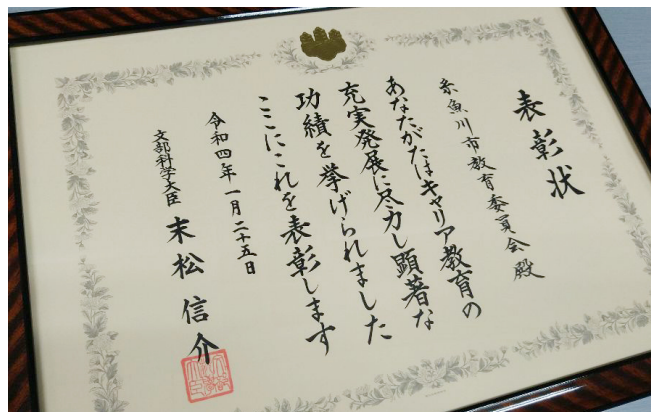 表彰状
糸魚川市教育委員会殿
あなたがたはキャリア教育の
充実発展に尽力し顕著な
功績を挙げられました
ここにこれを表彰します
令和四年一月二十五日
文部科学大臣 末松信介